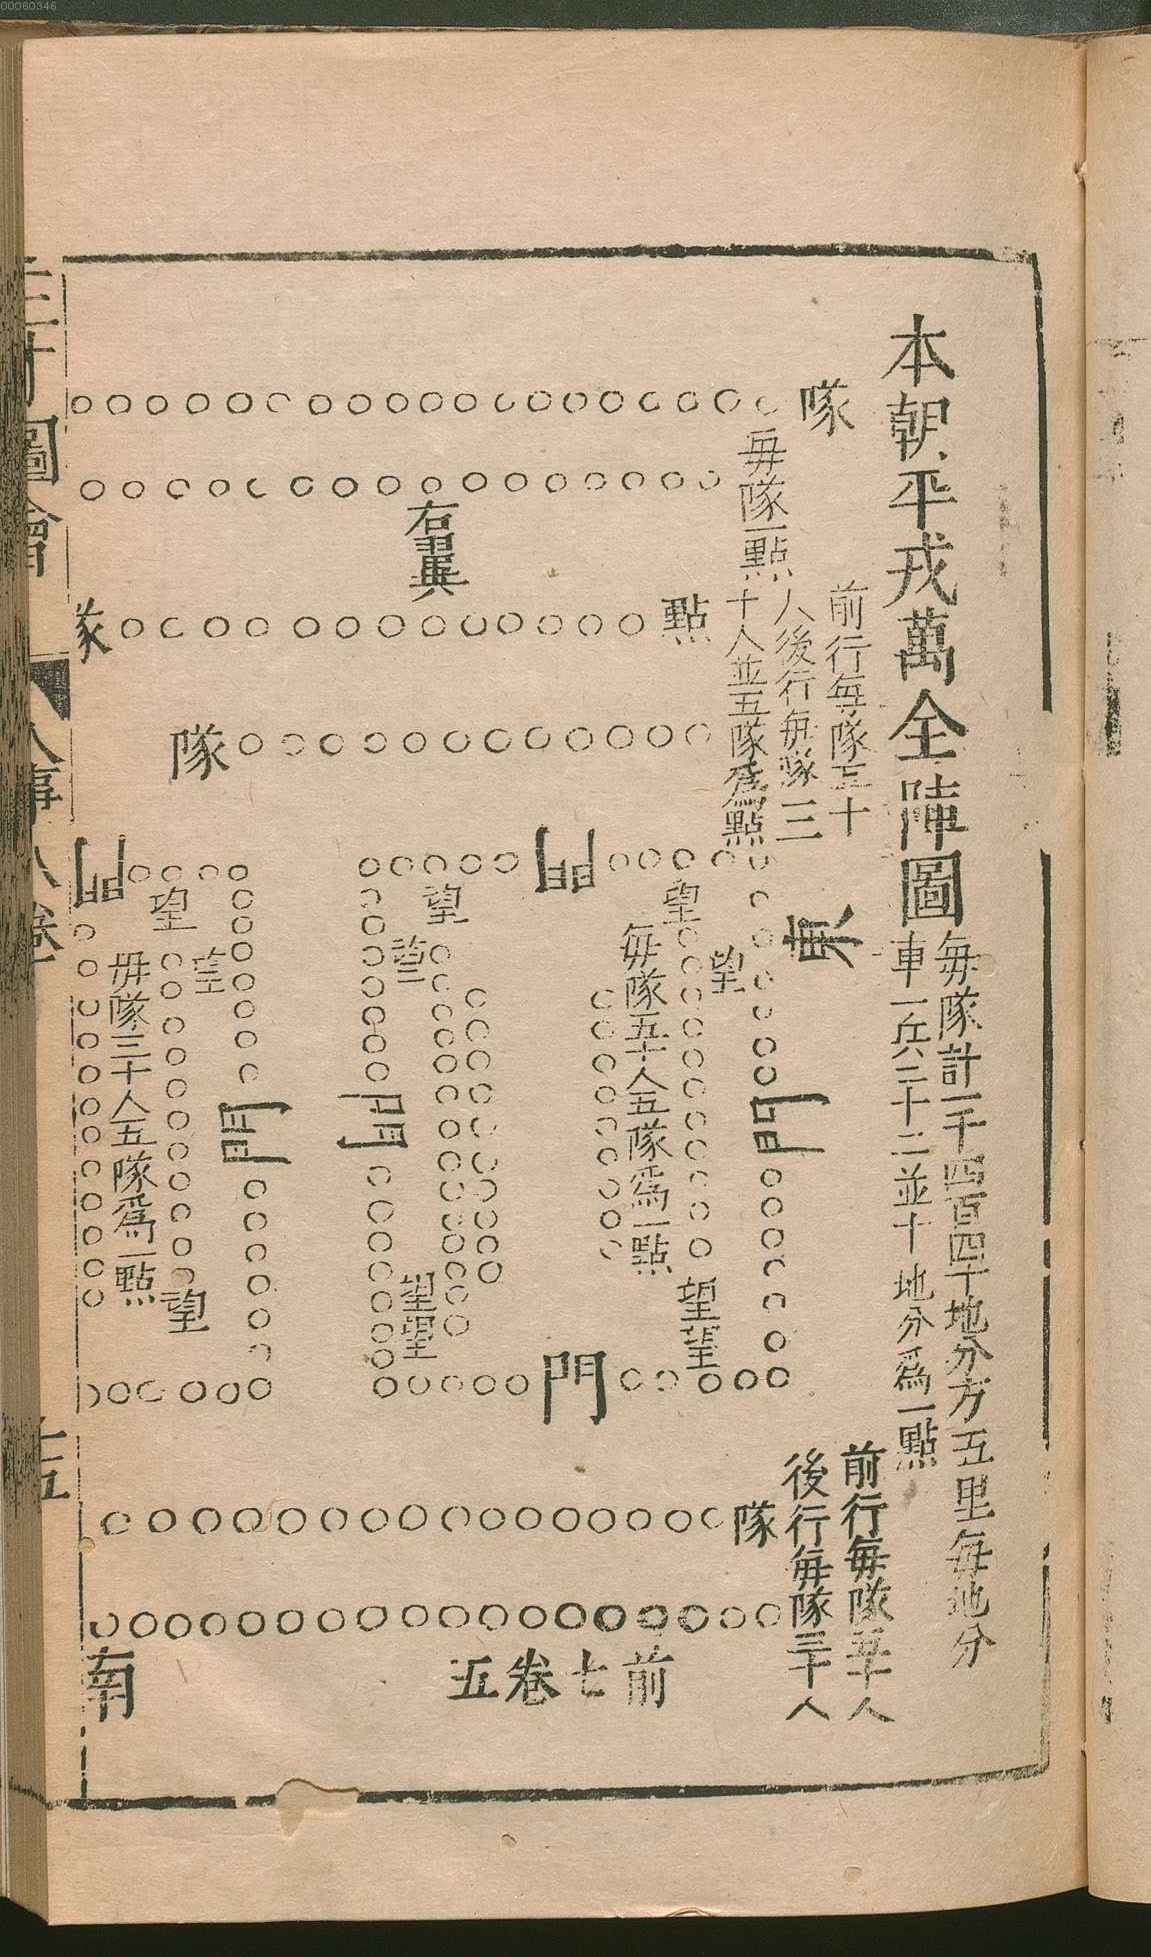 00060346
本朝平戎萬全陣圖
每隊計一千四百四十地分方五里每地分
車一兵二十二並十地分爲一點
前行每隊五十
人後行每隊三
十人並五隊爲點
隊
每隊一點
點
右翼
隊
隊
東
門
門
門
門
門
門
望
望
望
望
望
望
望
望
望
望
望
每隊五十人五隊爲一點
每隊三十人五隊爲一點
前行每隊五十人
後行每隊三十人
隊
前七卷五
南
三才圖會
人事八卷
十五